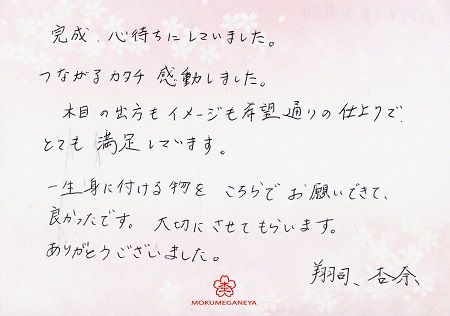 完成、心待ちにしていました。
つながるカタチ 感動しました。
木目の出方もイメージも希望通りの仕上りで
とても 満足しています。
一生身に付ける物を こちらで お願いできて、
良かったです。 大切にさせてもらいます。
ありがとうございました。
翔司、杏奈
MOKUMEGANEYA